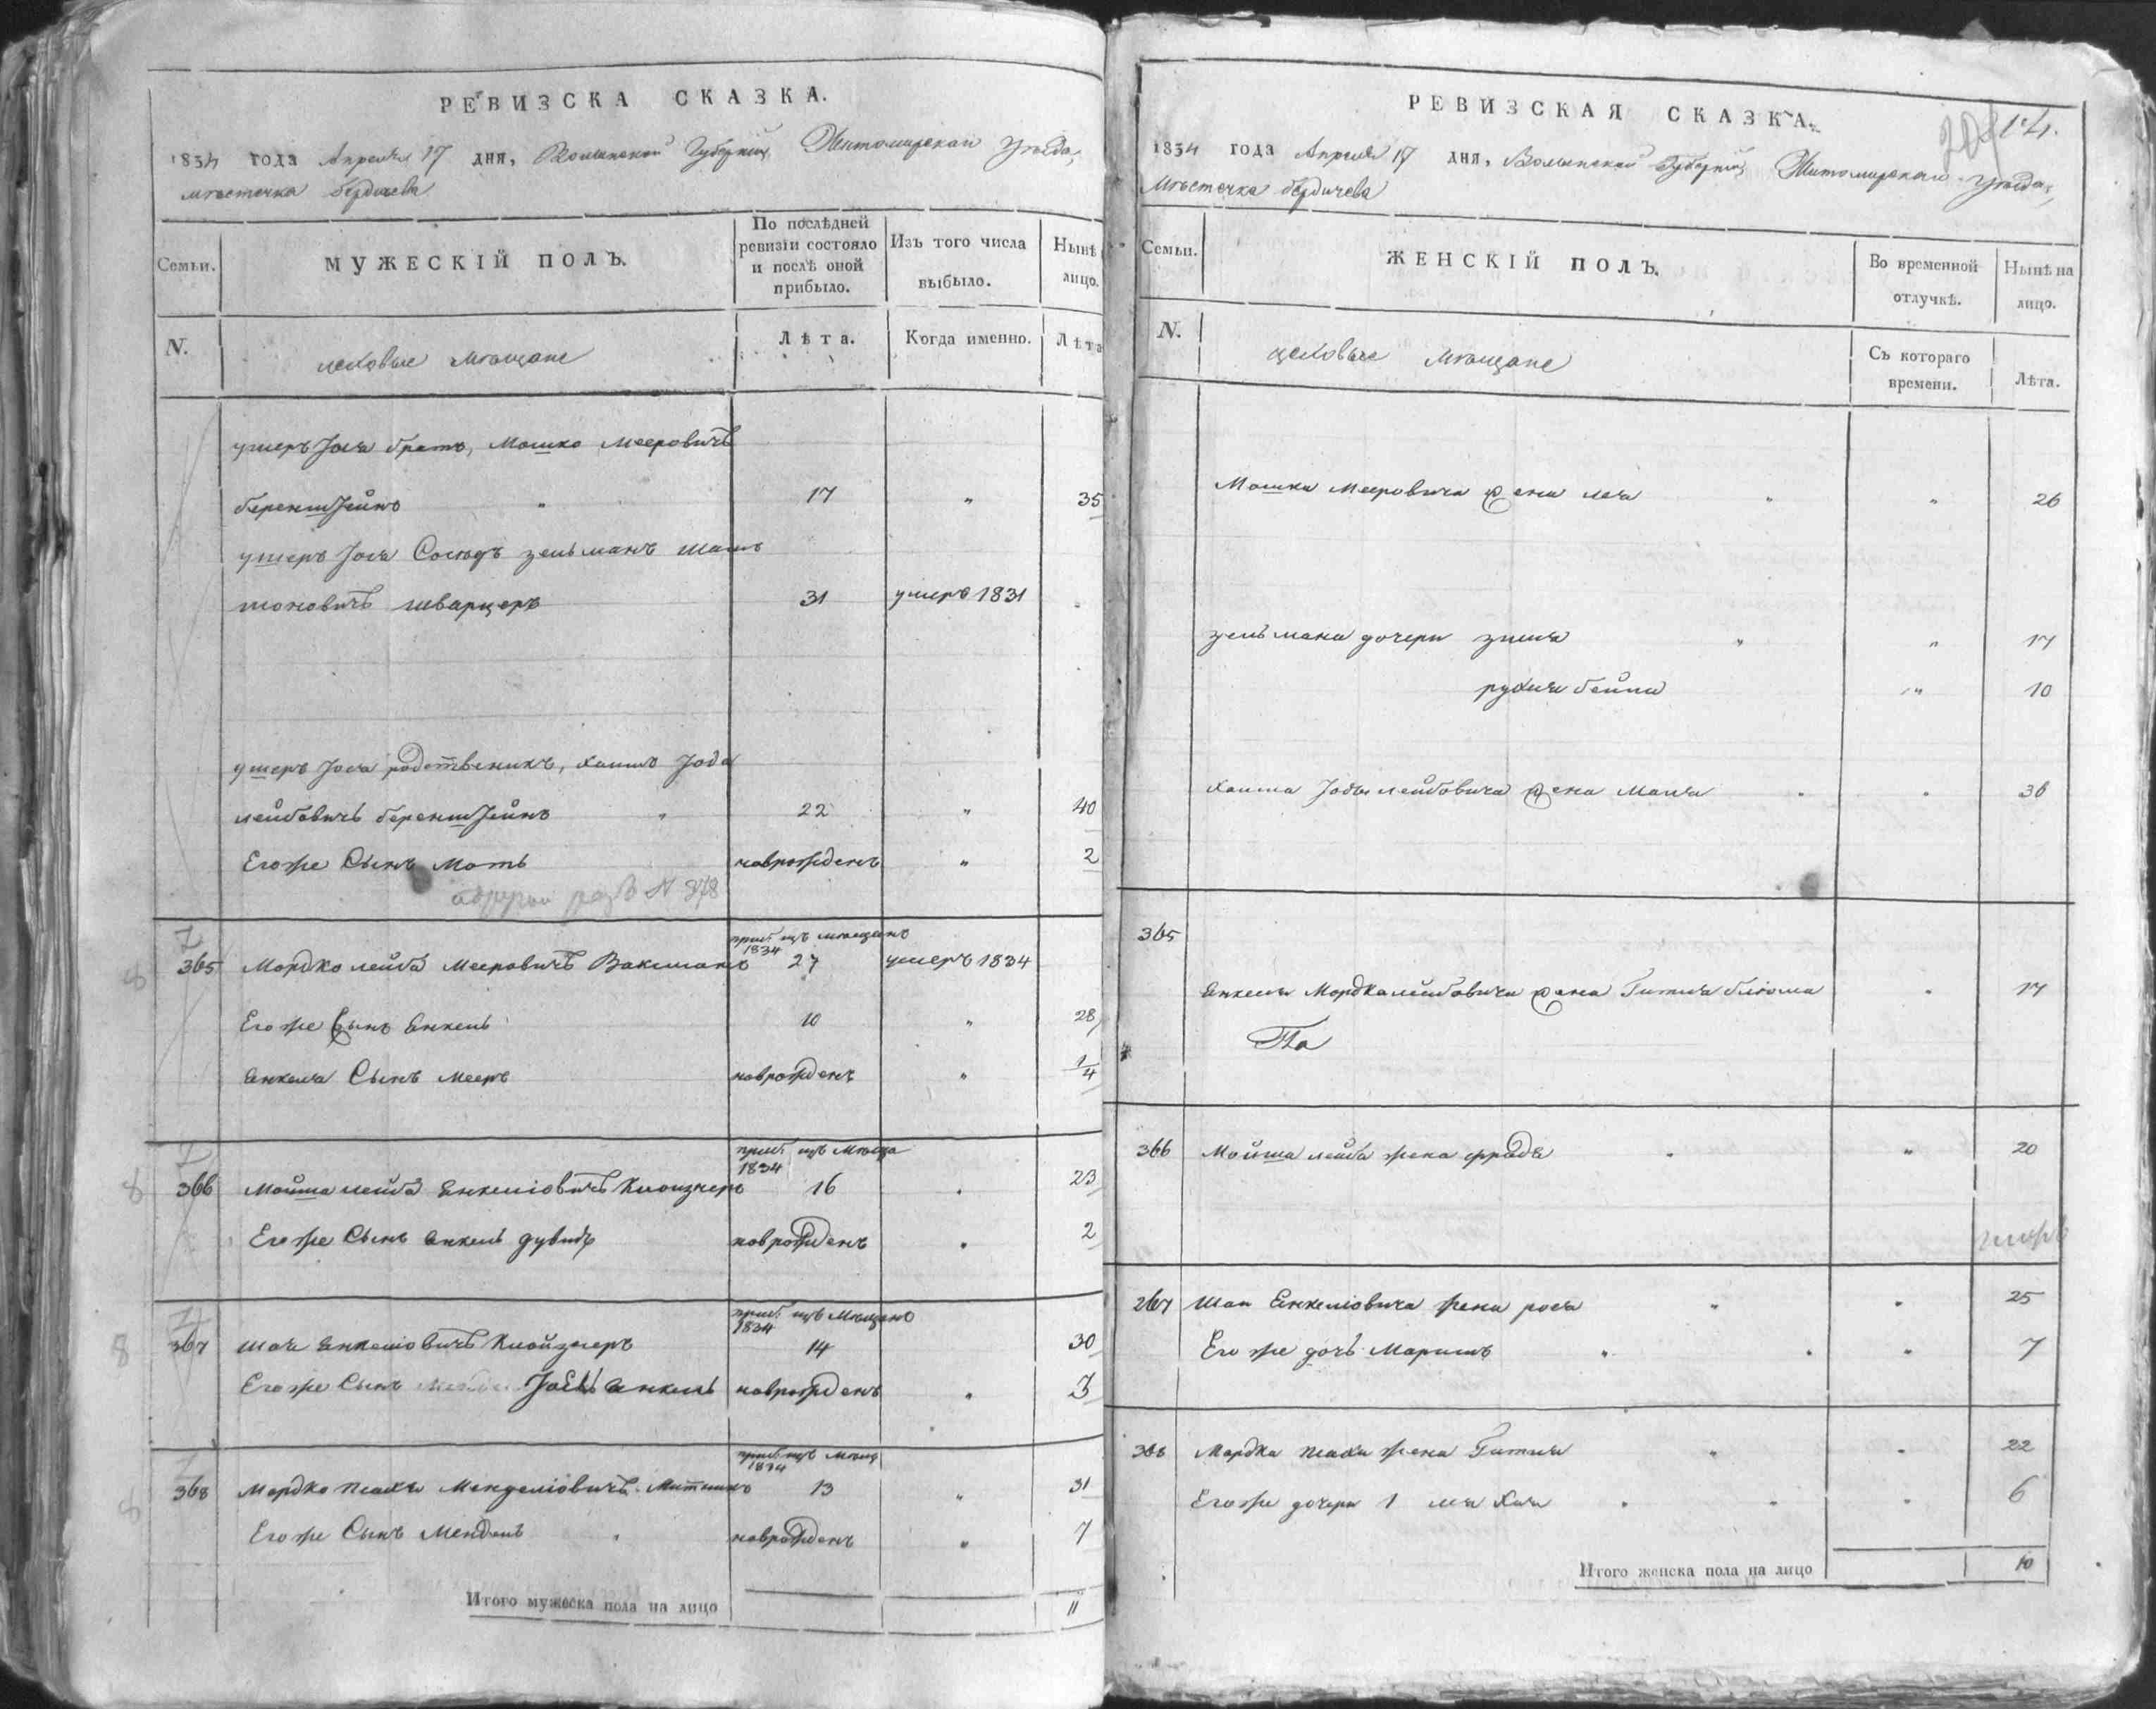 РЕВИЗСКА СКАЗКА.
1834 года Апреля 17 дня, Волынской Губернии, Житомирскаи Уѣзда,
мѣстечка бердичева
Семьи.
МУЖЕСКІЙ ПОЛЪ.
По послѣдней ревизіи состояло и послѣ оной прибыло.
Изъ того числа выбыло.
Нынѣ лицо.
N.
цеховые мѣщане
Лѣта.
Когда именно.
Лѣта
ушеръ Јося братъ, Мошко Мееровичъ
беренштейнъ " 17 " 35
ушеръ Јося Сосюдъ зельманъ шаль
моновичъ шварцеръ 31 умеръ 1831
ушеръ Јося родственикъ, хаимъ Јода
лейбовичъ беренштейнъ " 22 " 40
Егоже Сынъ Моть новрожденъ " 2
N 378
приб. изъ мѣщанъ
1834
365 Мордко лейба Мееровичъ Ваксманъ 27 умеръ 1834
Егоже Сынъ Енкель 10 " 28
Енкеля Сынъ Мееръ новрожденъ " 1/4
приб. изъ Мѣща
1834
366 Мойша лейба Енкеліовичъ Клойзнеръ 16 " 23
Егоже Сынъ Енкель дувидъ новрожденъ " 2
приб. изъ Мѣщанъ
1834
367 Шая Енкеліовичъ Клойзнеръ 14 30
Егоже Сынъ Јось Енкель новрожденъ " 3
приб изъ Мѣщ
1834
368 Мордко псахъ Менделіовичъ 13 " 31
Егоже Сынъ Мендель " новрожденъ " 7
8
8
8
8
Итого мужеска пола на лицо 11
РЕВИЗСКАЯ СКАЗКА.
1834 года Апреля 17 дня, Волынской Губерніи, Житомирскаи Уѣзда,
Мѣстечка бердичева
Семьи.
ЖЕНСКІЙ ПОЛЪ.
Во временной отлучкѣ.
Нынѣ на лицо.
N.
цеховые Мѣщане
Съ котораго времени.
Лѣта.
Мошка Мееровича жена лея " " 26
зельмана дочери зися " " 17
рухля бейла " 10
хаима Јоды лейбовича жена Маля " " 36
365
Енкеля Мордкалейбовича жена Гитля блюма " 17
366 Мойша лейба жена фрада " " 20
умеръ
267 Шаи Енкеліовича жена рося " " 25
Егоже дочь Маримъ " " " 7
368 Мордка псаха жена Гитля " " 22
Егоже дочери 1 лея хая " " " 6
Итого женска пола на лицо 10